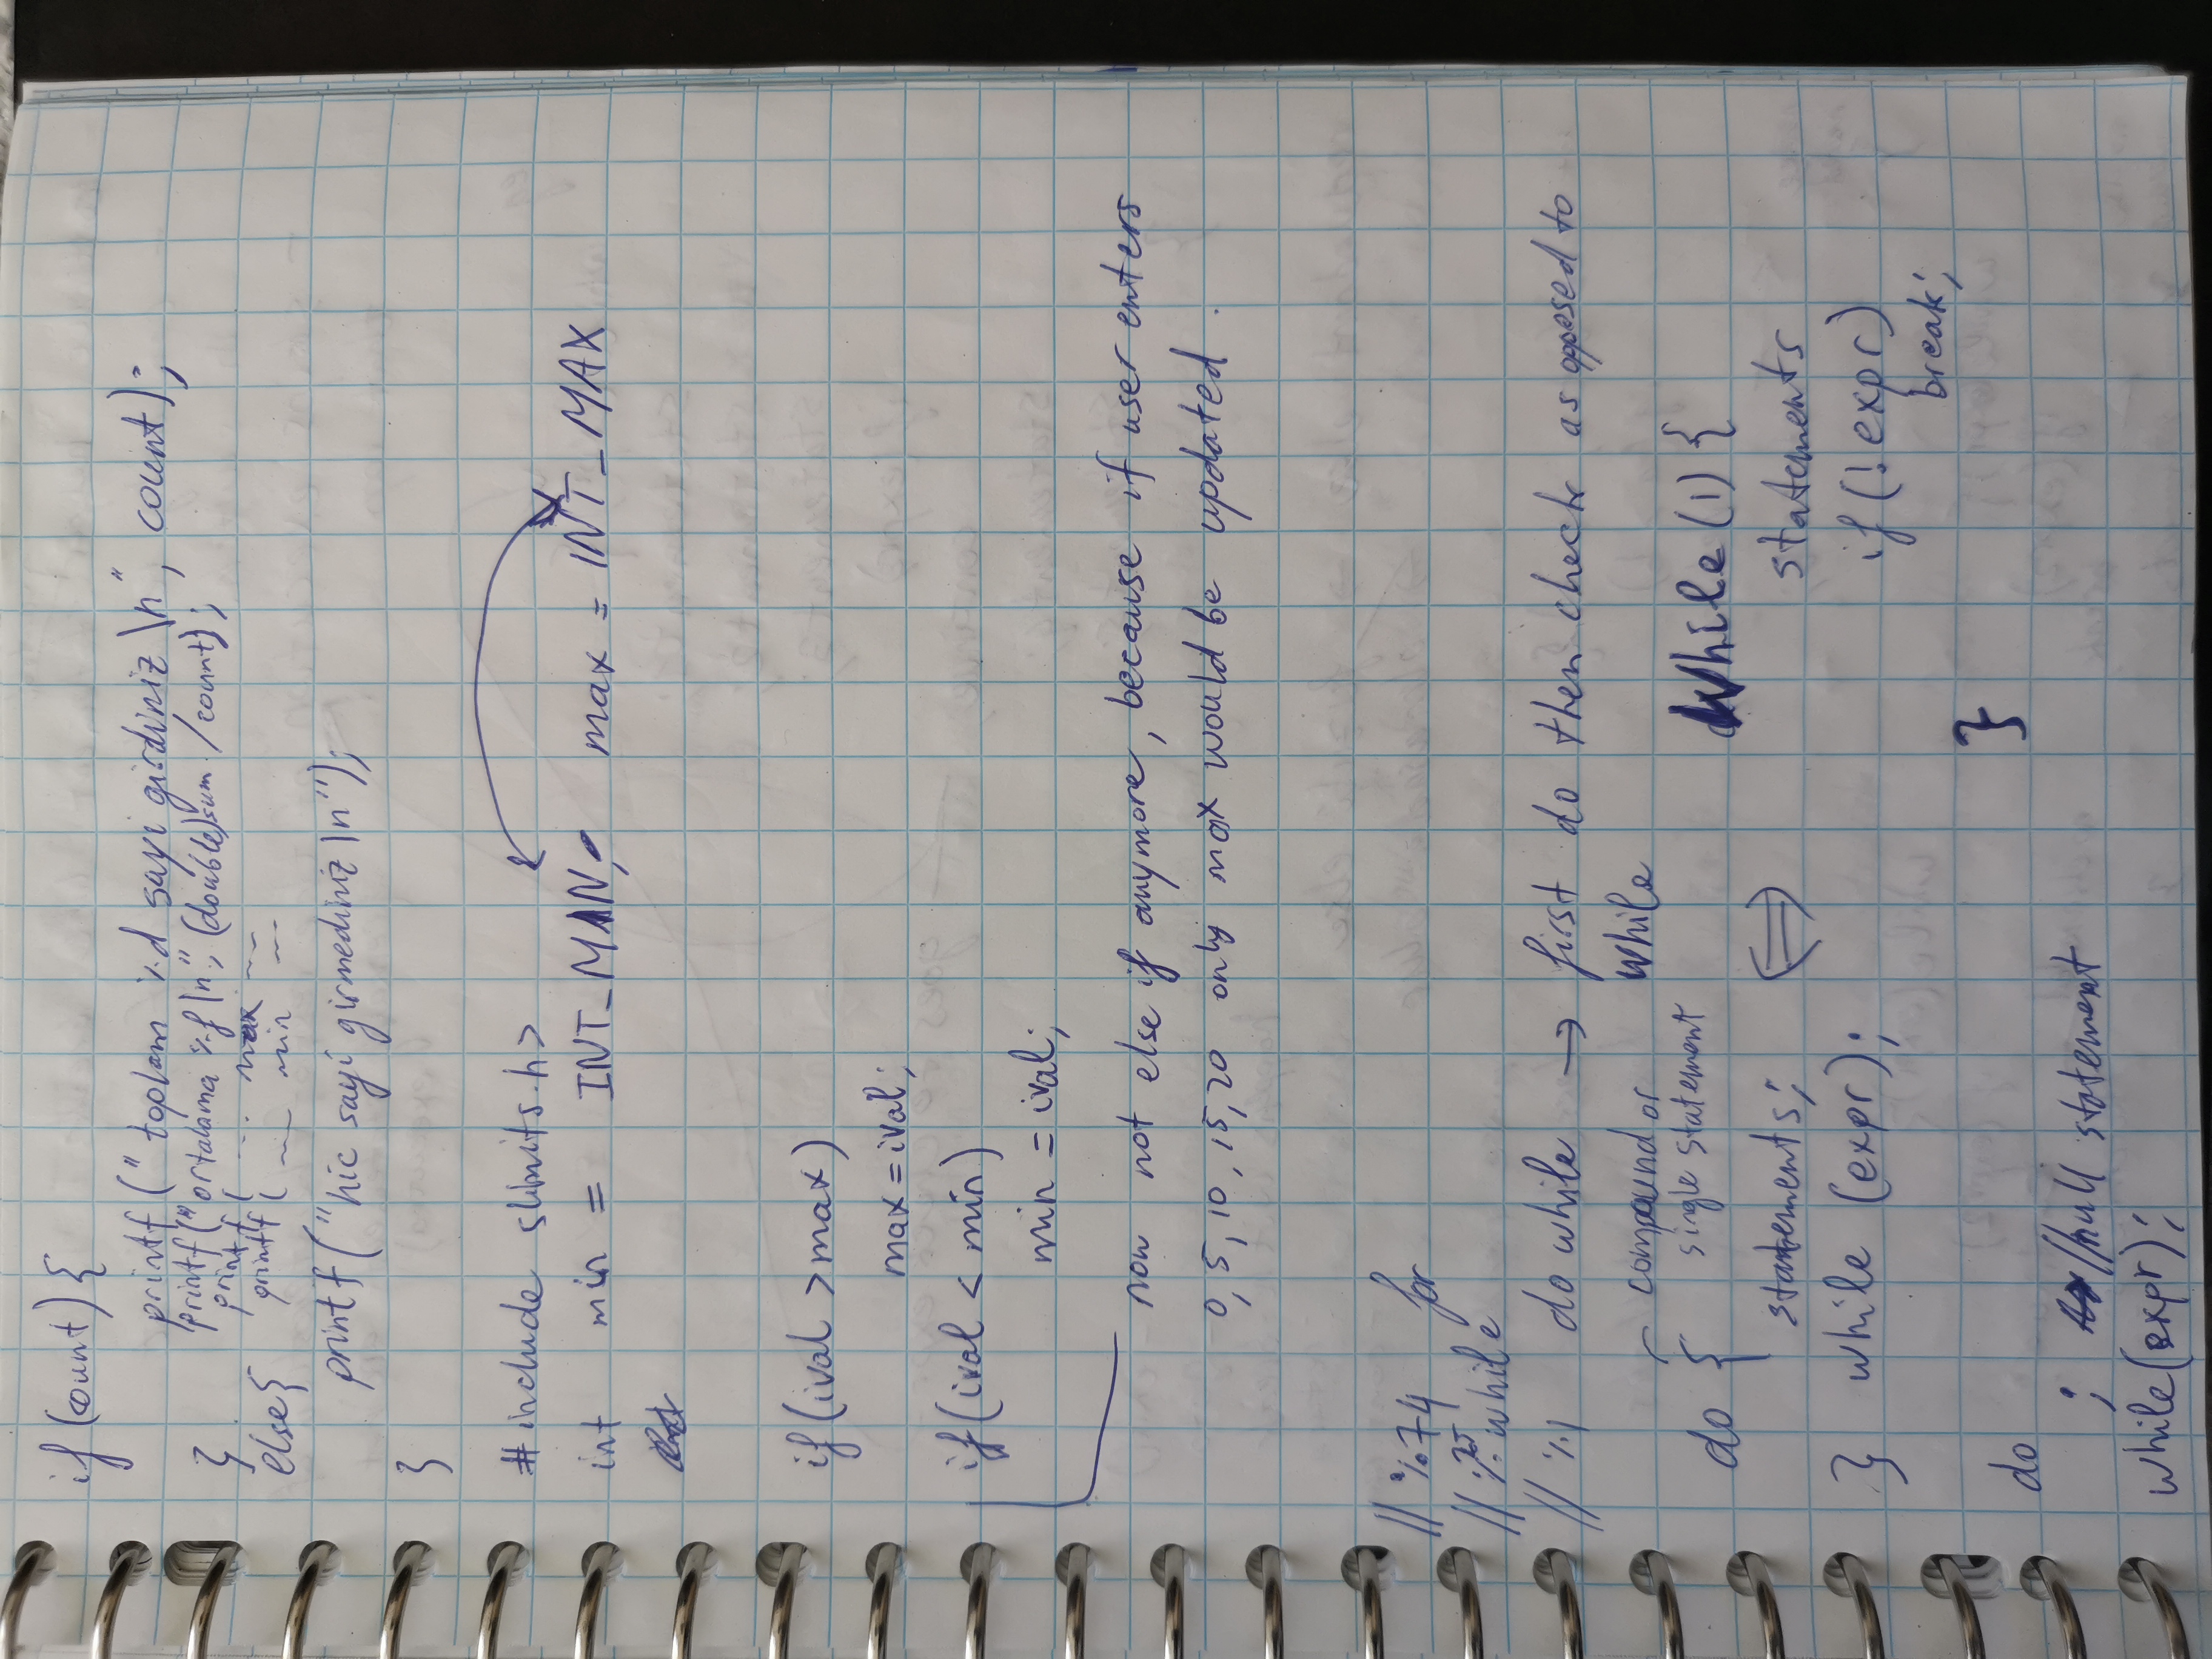 if (count) {
printf (" toplam %d sayi girdiniz \n", count);
printf ("ortalama %f \n", (double)sum / count);
}
printf ( --- max ---
else{
printf ( --- min ---
printf ("hic sayi girmediniz \n");
}
#include <limits.h>
int min = INT_MIN; max = INT_MAX
if (ival > max)
max = ival;
if (ival < min)
min = ival;
now not else if anymore, because if user enters
0, 5, 10, 15, 20 only max would be updated.
// %74 for
// %25 while
// %1 do while → first do then check as opposed to
while
compound or
single statement
do { while (1) {
statements; ⟺ statements
} while (expr); if (! expr)
break;
}
do
; //null statement
while (expr);